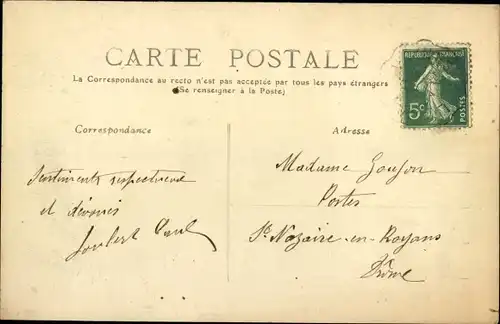 CARTE POSTALE
La Correspondance au recto n'est pas acceptée par tous les pays étrangers
(Se renseigner à la Poste)
REPUBLIQUE FRANÇAISE
5c
POSTES
Correspondance
Adresse
Sentiments respectueux
et dévoués
Joubert Paul
Madame Goujon
Postes
St Nazaire-en-Royans
Drôme